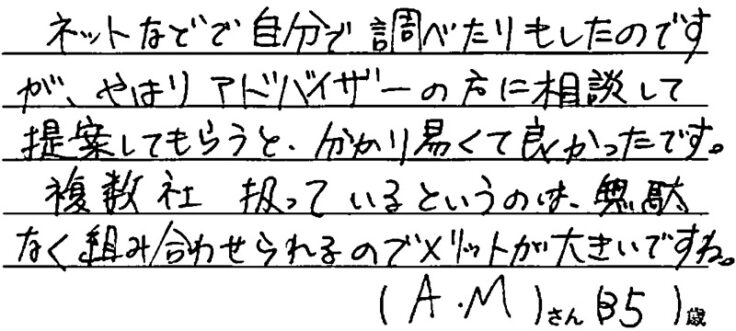 ネットなどで自分で調べたりもしたのです
が、やはりアドバイザーの方に相談して
提案してもらうと、分かり易くて良かったです。
複数社 扱っているというのは、無駄
なく組み合わせられるのでメリットが大きいですね。
(A.M)さん(35)歳